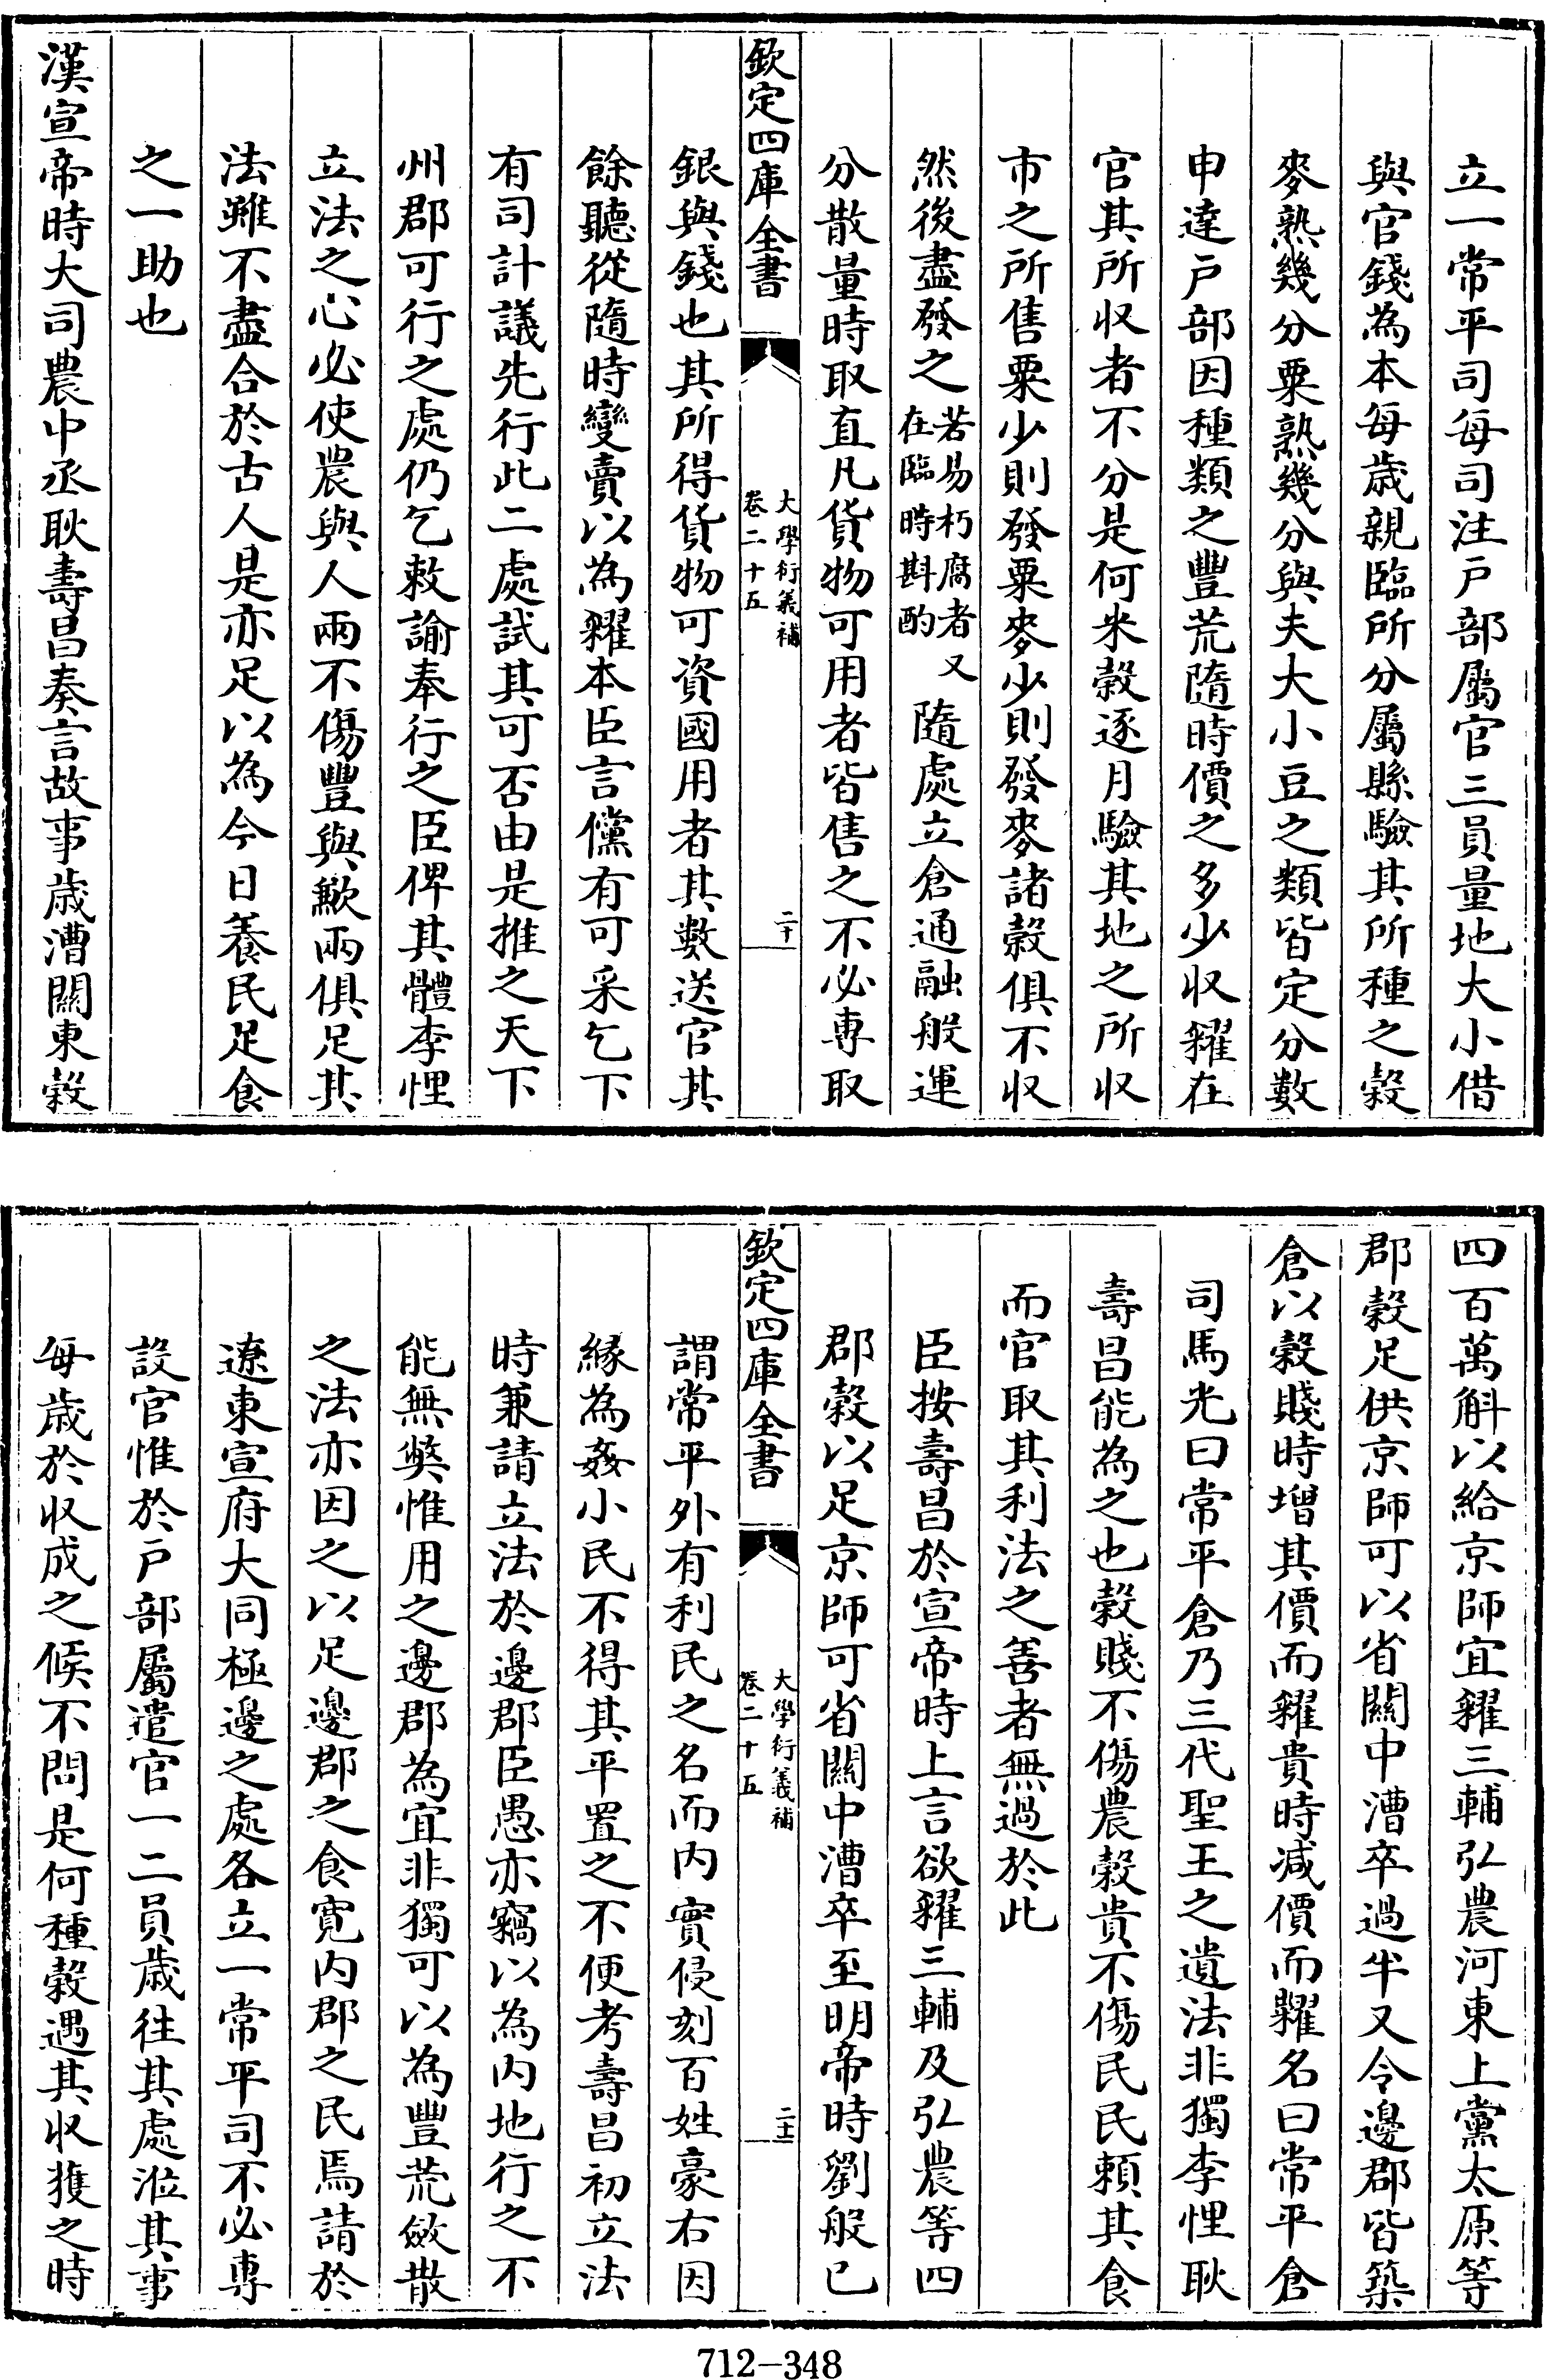 立一常平司每司注戸部屬官三員量地大小借
與官錢為本每歲親臨所分屬縣驗其所種之榖
麥熟幾分粟熟幾分與夫大小豆之類皆定分數
申達戸部因種類之豐荒隨時價之多少収糴在
官其所収者不分是何米榖逐月驗其地之所収
市之所售粟少則發粟麥少則發麥諸榖俱不収
然後盡發之若易朽腐者又在臨時斟酌隨處立倉通融般運
分散量時取直凡貨物可用者皆售之不必専取
欽定四庫全書
大學衍義補
卷二十五
二十
銀與錢也其所得貨物可資國用者其數送官其
餘聽從隨時變賣以為糴本臣言儻有可采乞下
有司計議先行此二處試其可否由是推之天下
州郡可行之處仍乞敕諭奉行之臣俾其體李悝
立法之心必使農與人兩不傷豐與歉兩俱足其
法雖不盡合於古人是亦足以為今日養民足食
之一助也
漢宣帝時大司農中丞耿壽昌奏言故事歲漕關東榖
四百萬斛以給京師宜糴三輔弘農河東上黨太原等
郡榖足供京師可以省關中漕卒過半又令邊郡皆築
倉以榖賤時增其價而糴貴時减價而糶名曰常平倉
司馬光曰常平倉乃三代聖王之遺法非獨李悝耿
壽昌能為之也榖賤不傷農榖貴不傷民民賴其食
而官取其利法之善者無過於此
臣按壽昌於宣帝時上言欲糴三輔及弘農等四
郡榖以足京師可省關中漕卒至明帝時劉般已
欽定四庫全書
大學衍義補
卷二十五
二十一
謂常平外有利民之名而内實侵刻百姓豪右因
緣為姦小民不得其平置之不便考壽昌初立法
時兼請立法於邊郡臣愚亦竊以為内地行之不
能無獘惟用之邊郡為宜非獨可以為豐荒斂散
之法亦因之以足邊郡之食寛内郡之民焉請於
遼東宣府大同極邊之處各立一常平司不必專
設官惟於戸部屬遣官一二員歲往其處涖其事
每歲於収成之候不問是何種榖遇其収穫之時
712-348